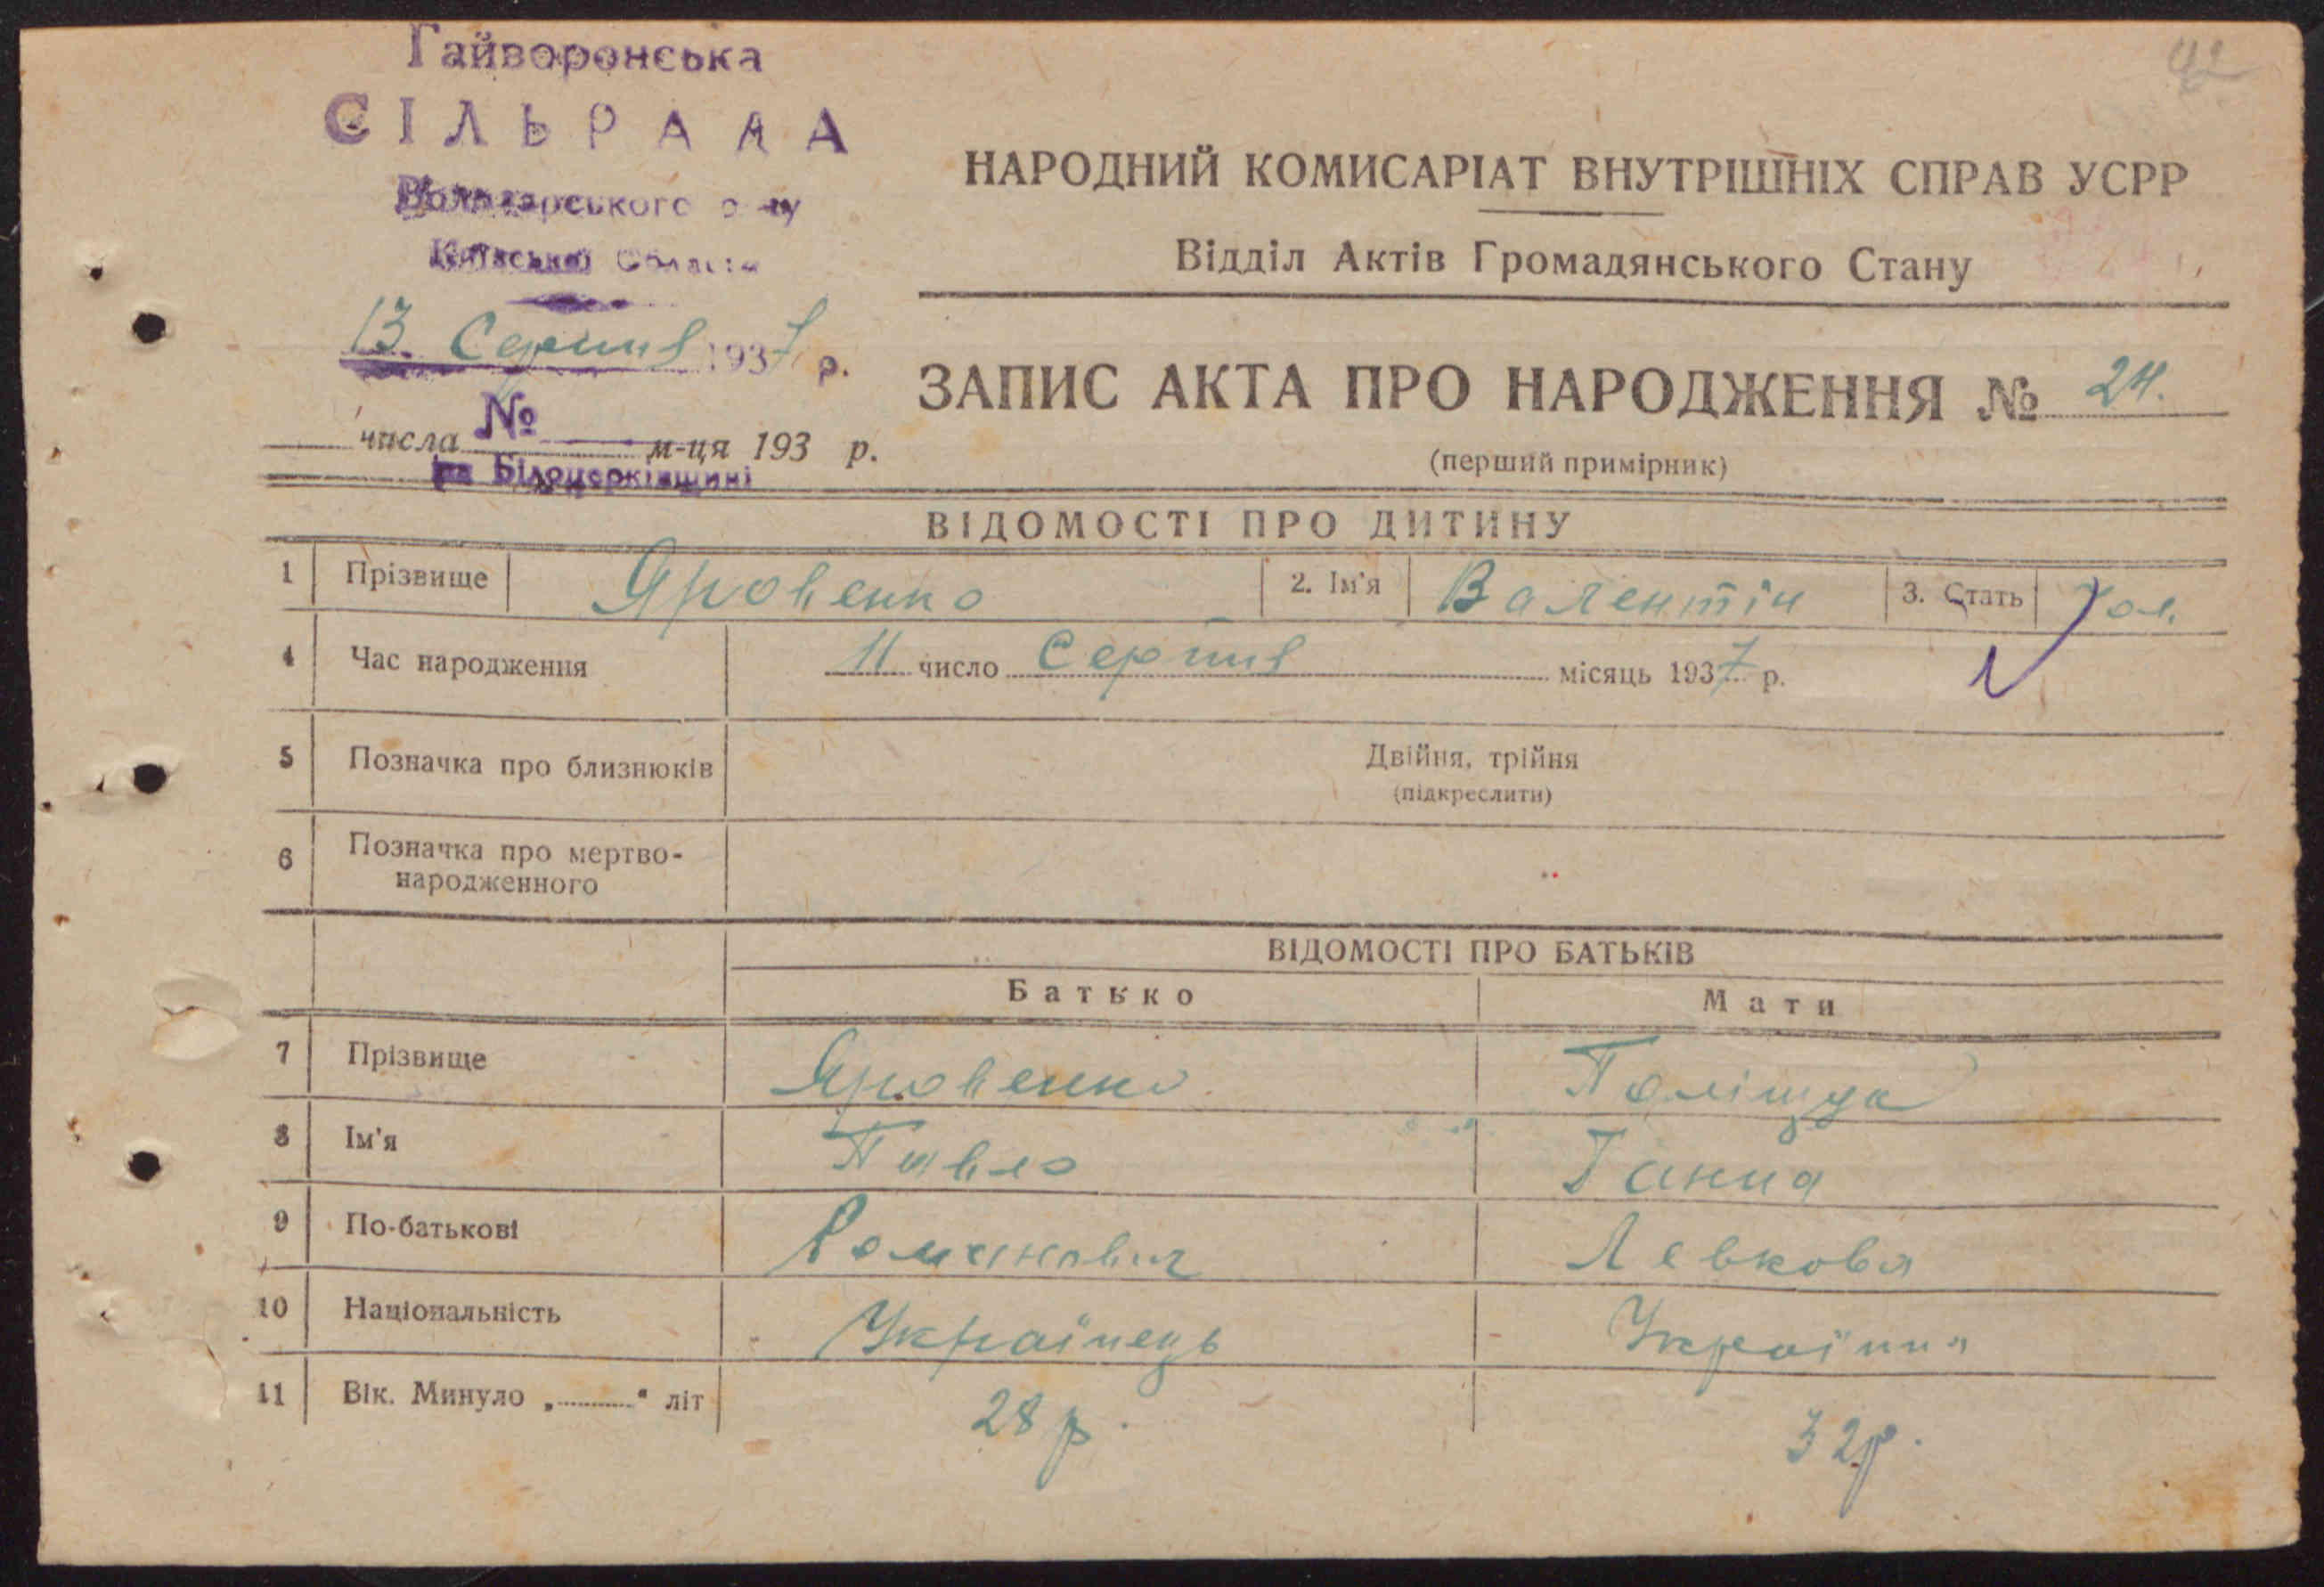 42
Гайворонська
СІЛЬРАДА
Володарського р-ну
Київської Области
13. Серпня 1937 р.
№
числа м-ця 193 р.
на Білоцерківщині
НАРОДНИЙ КОМИСАРІАТ ВНУТРІШНІХ СПРАВ УСРР
Відділ Актів Громадянського Стану
ЗАПИС АКТА ПРО НАРОДЖЕННЯ № 24.
(перший примірник)
ВІДОМОСТІ ПРО ДИТИНУ
1 Прізвище Яровенко 2. Ім'я Валентін 3. Стать Чол.
4 Час народження 11 число Серпня місяць 1937 р.
5 Позначка про близнюків Двійня, трійня
(підкреслити)
6 Позначка про мертво-
народженного
ВІДОМОСТІ ПРО БАТЬКІВ
Батько Мати
7 Прізвище Яровенко Поліщук
8 Ім'я Павло Ганна
9 По-батькові Романович Левковна
10 Національність Українець Українка
11 Вік. Минуло „ “ літ 28 р. 32 р.